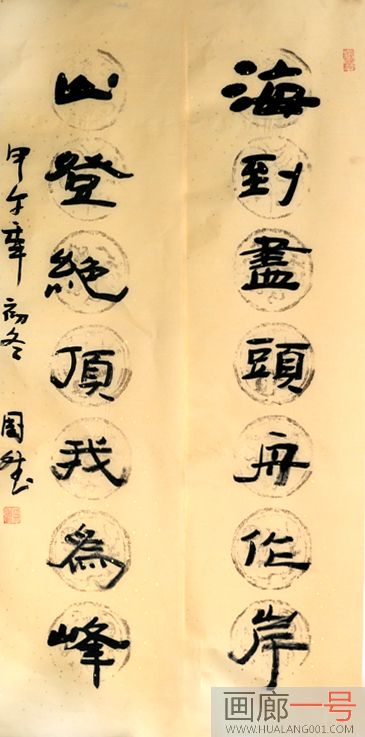 海到盡頭舟作岸
山登絕頂我為峰
甲午年初冬
画廊一号
WWW.HUALANG001.COM